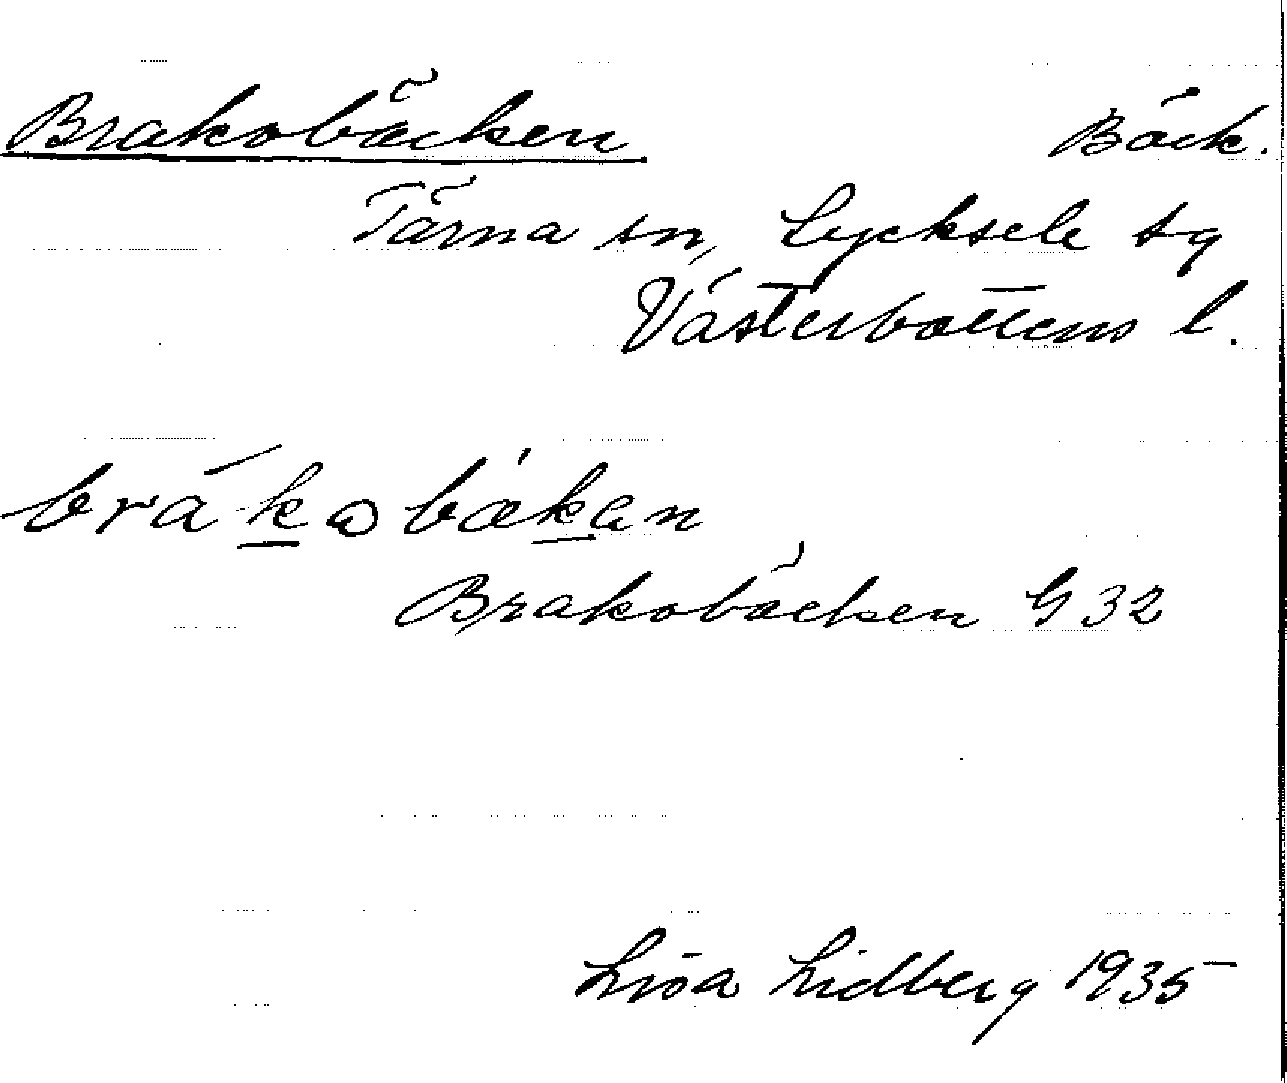 Brakobäcken Bäck.
Tärna sn, Lycksele tg
Västerbottens l.
brákobækan
Brakobäcken G 32
Lisa Lidberg 1935